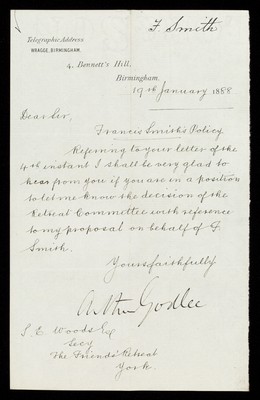 F. Smith
Telegraphic Address
WRAGGE, BIRMINGHAM.
4, Bennett's Hill,
Birmingham,
19th January 1888
Dear Sir,
Francis Smith's Policy
Referring to your letter of the
4th instant I shall be very glad to
hear from you if you are in a position
to let me know the decision of the
Retreat Committee with reference
to my proposal on behalf of F.
Smith.
Yours faithfully
Arthur Godlee
S. E. Woods Esq
Secy
The Friends' Retreat
York.